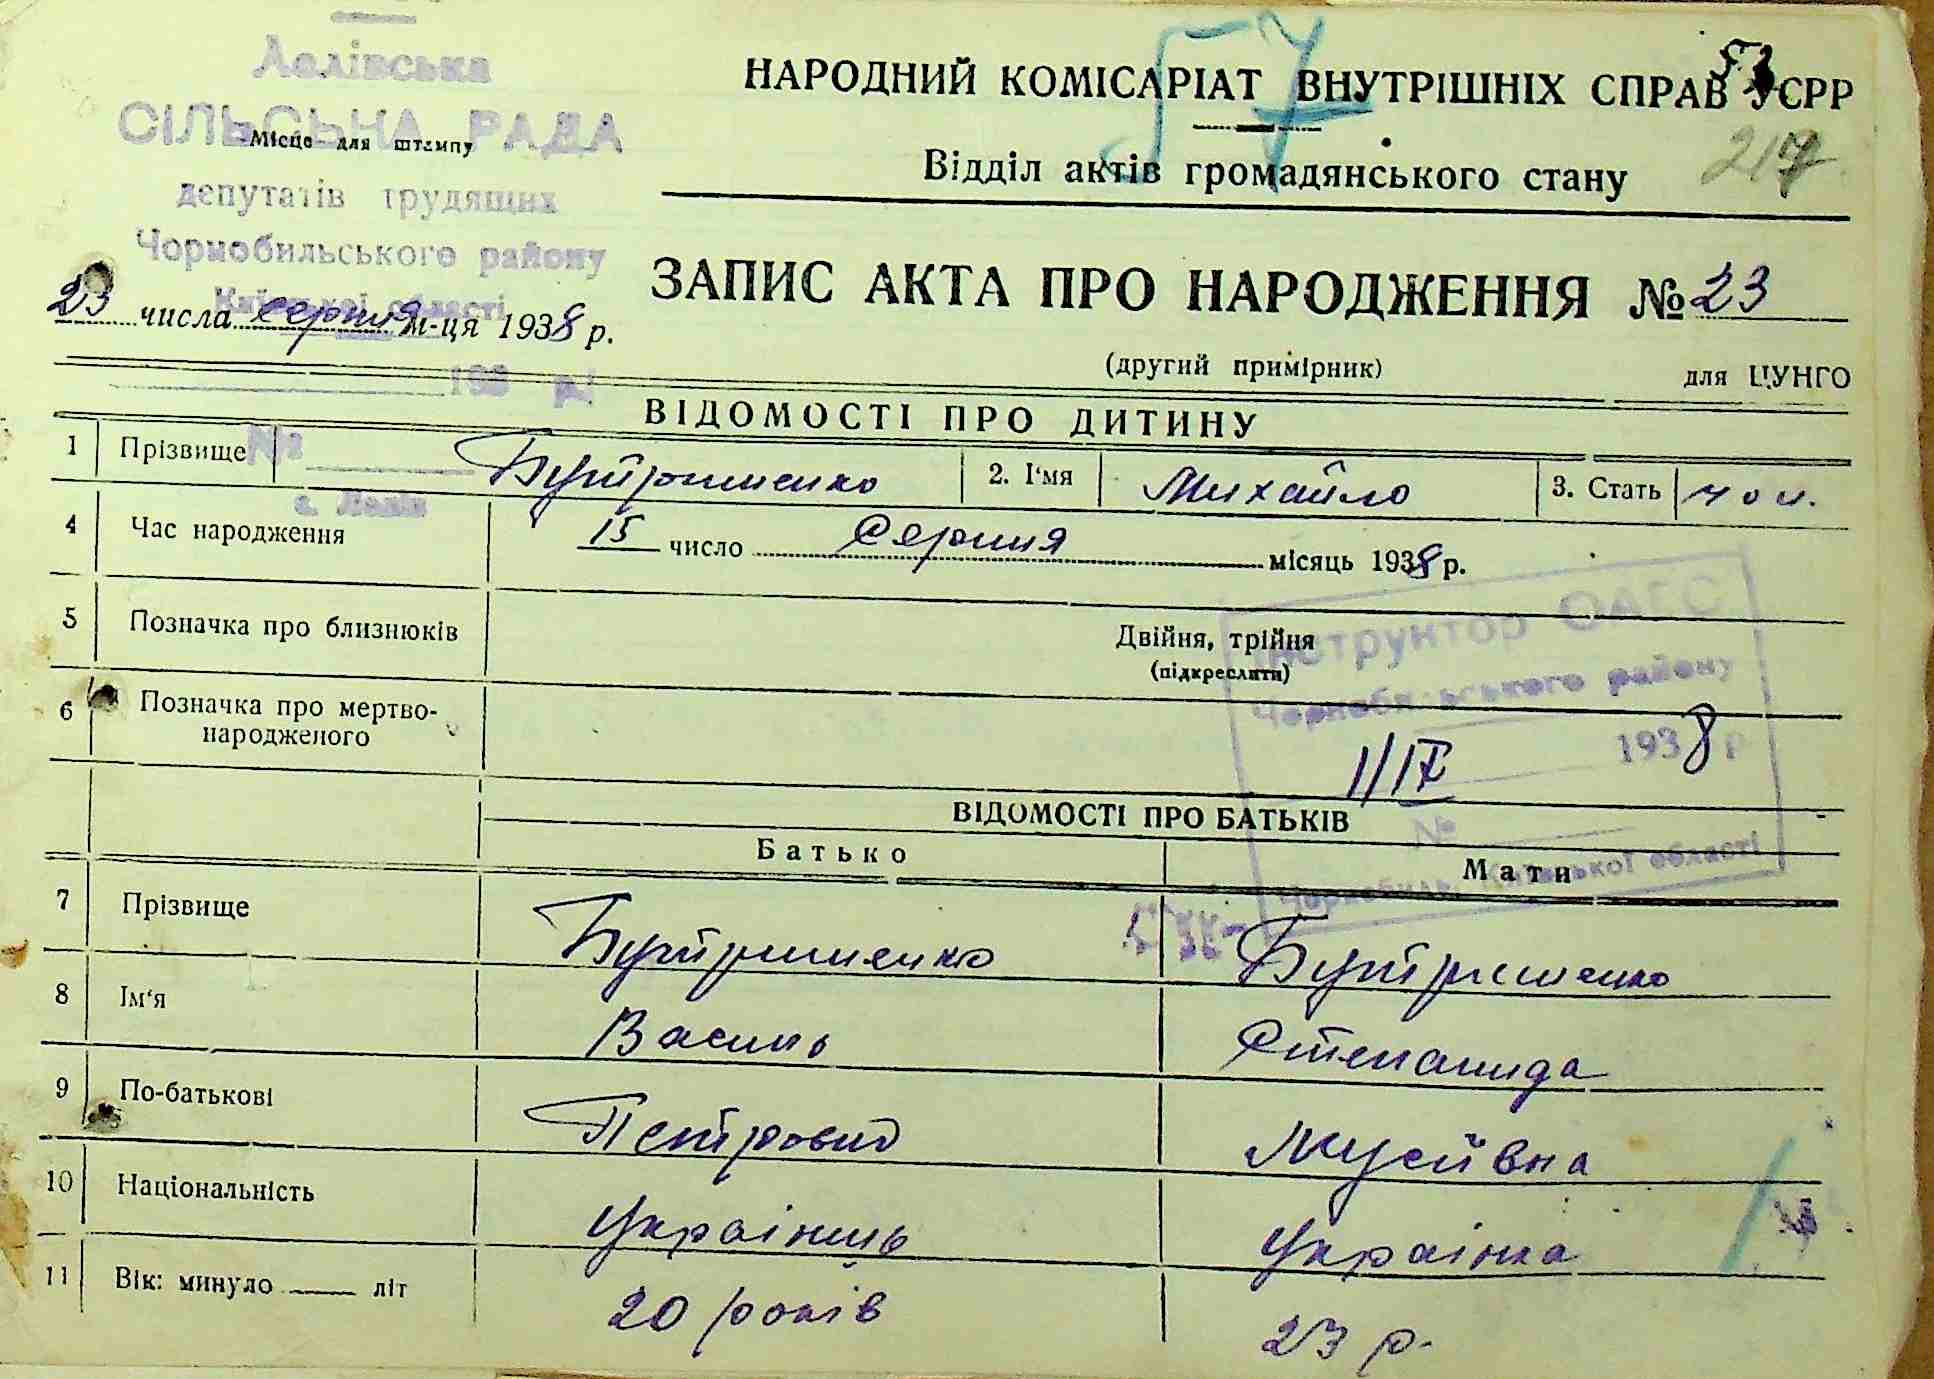 57
53
НАРОДНИЙ КОМІСАРІАТ ВНУТРІШНІХ СПРАВ УСРР
217
Відділ актів громадянського стану
Лелівська
СІЛЬСЬКА РАДА
Місце для штампу
депутатів трудящих
Чорнобильського району
Київської області
23 числа серпня м-ця 1938 р.
193 р.
ЗАПИС АКТА ПРО НАРОДЖЕННЯ № 23
(другий примірник)
для ЦУНГО
ВІДОМОСТІ ПРО ДИТИНУ
1 Прізвище Бутрименко 2. І'мя Михайло 3. Стать чол.
№
с. Лелів
4 Час народження 15 число Серпня місяць 1938 р.
5 Позначка про близнюків Двійня, трійня
(підкреслити)
6 Позначка про мертво-
народженого
Інструктор ОАГС
Чорнобильського району
1/IX 1938 р
№
Чорнобиль, Київської області
ВІДОМОСТІ ПРО БАТЬКІВ
Батько Мати
7 Прізвище Бутрименко Бутрименко
8 Ім'я Василь Степанида
9 По-батькові Петрович Мусіївна
10 Національність Українець Українка
11 Вік: минуло літ 20 років 23 р.